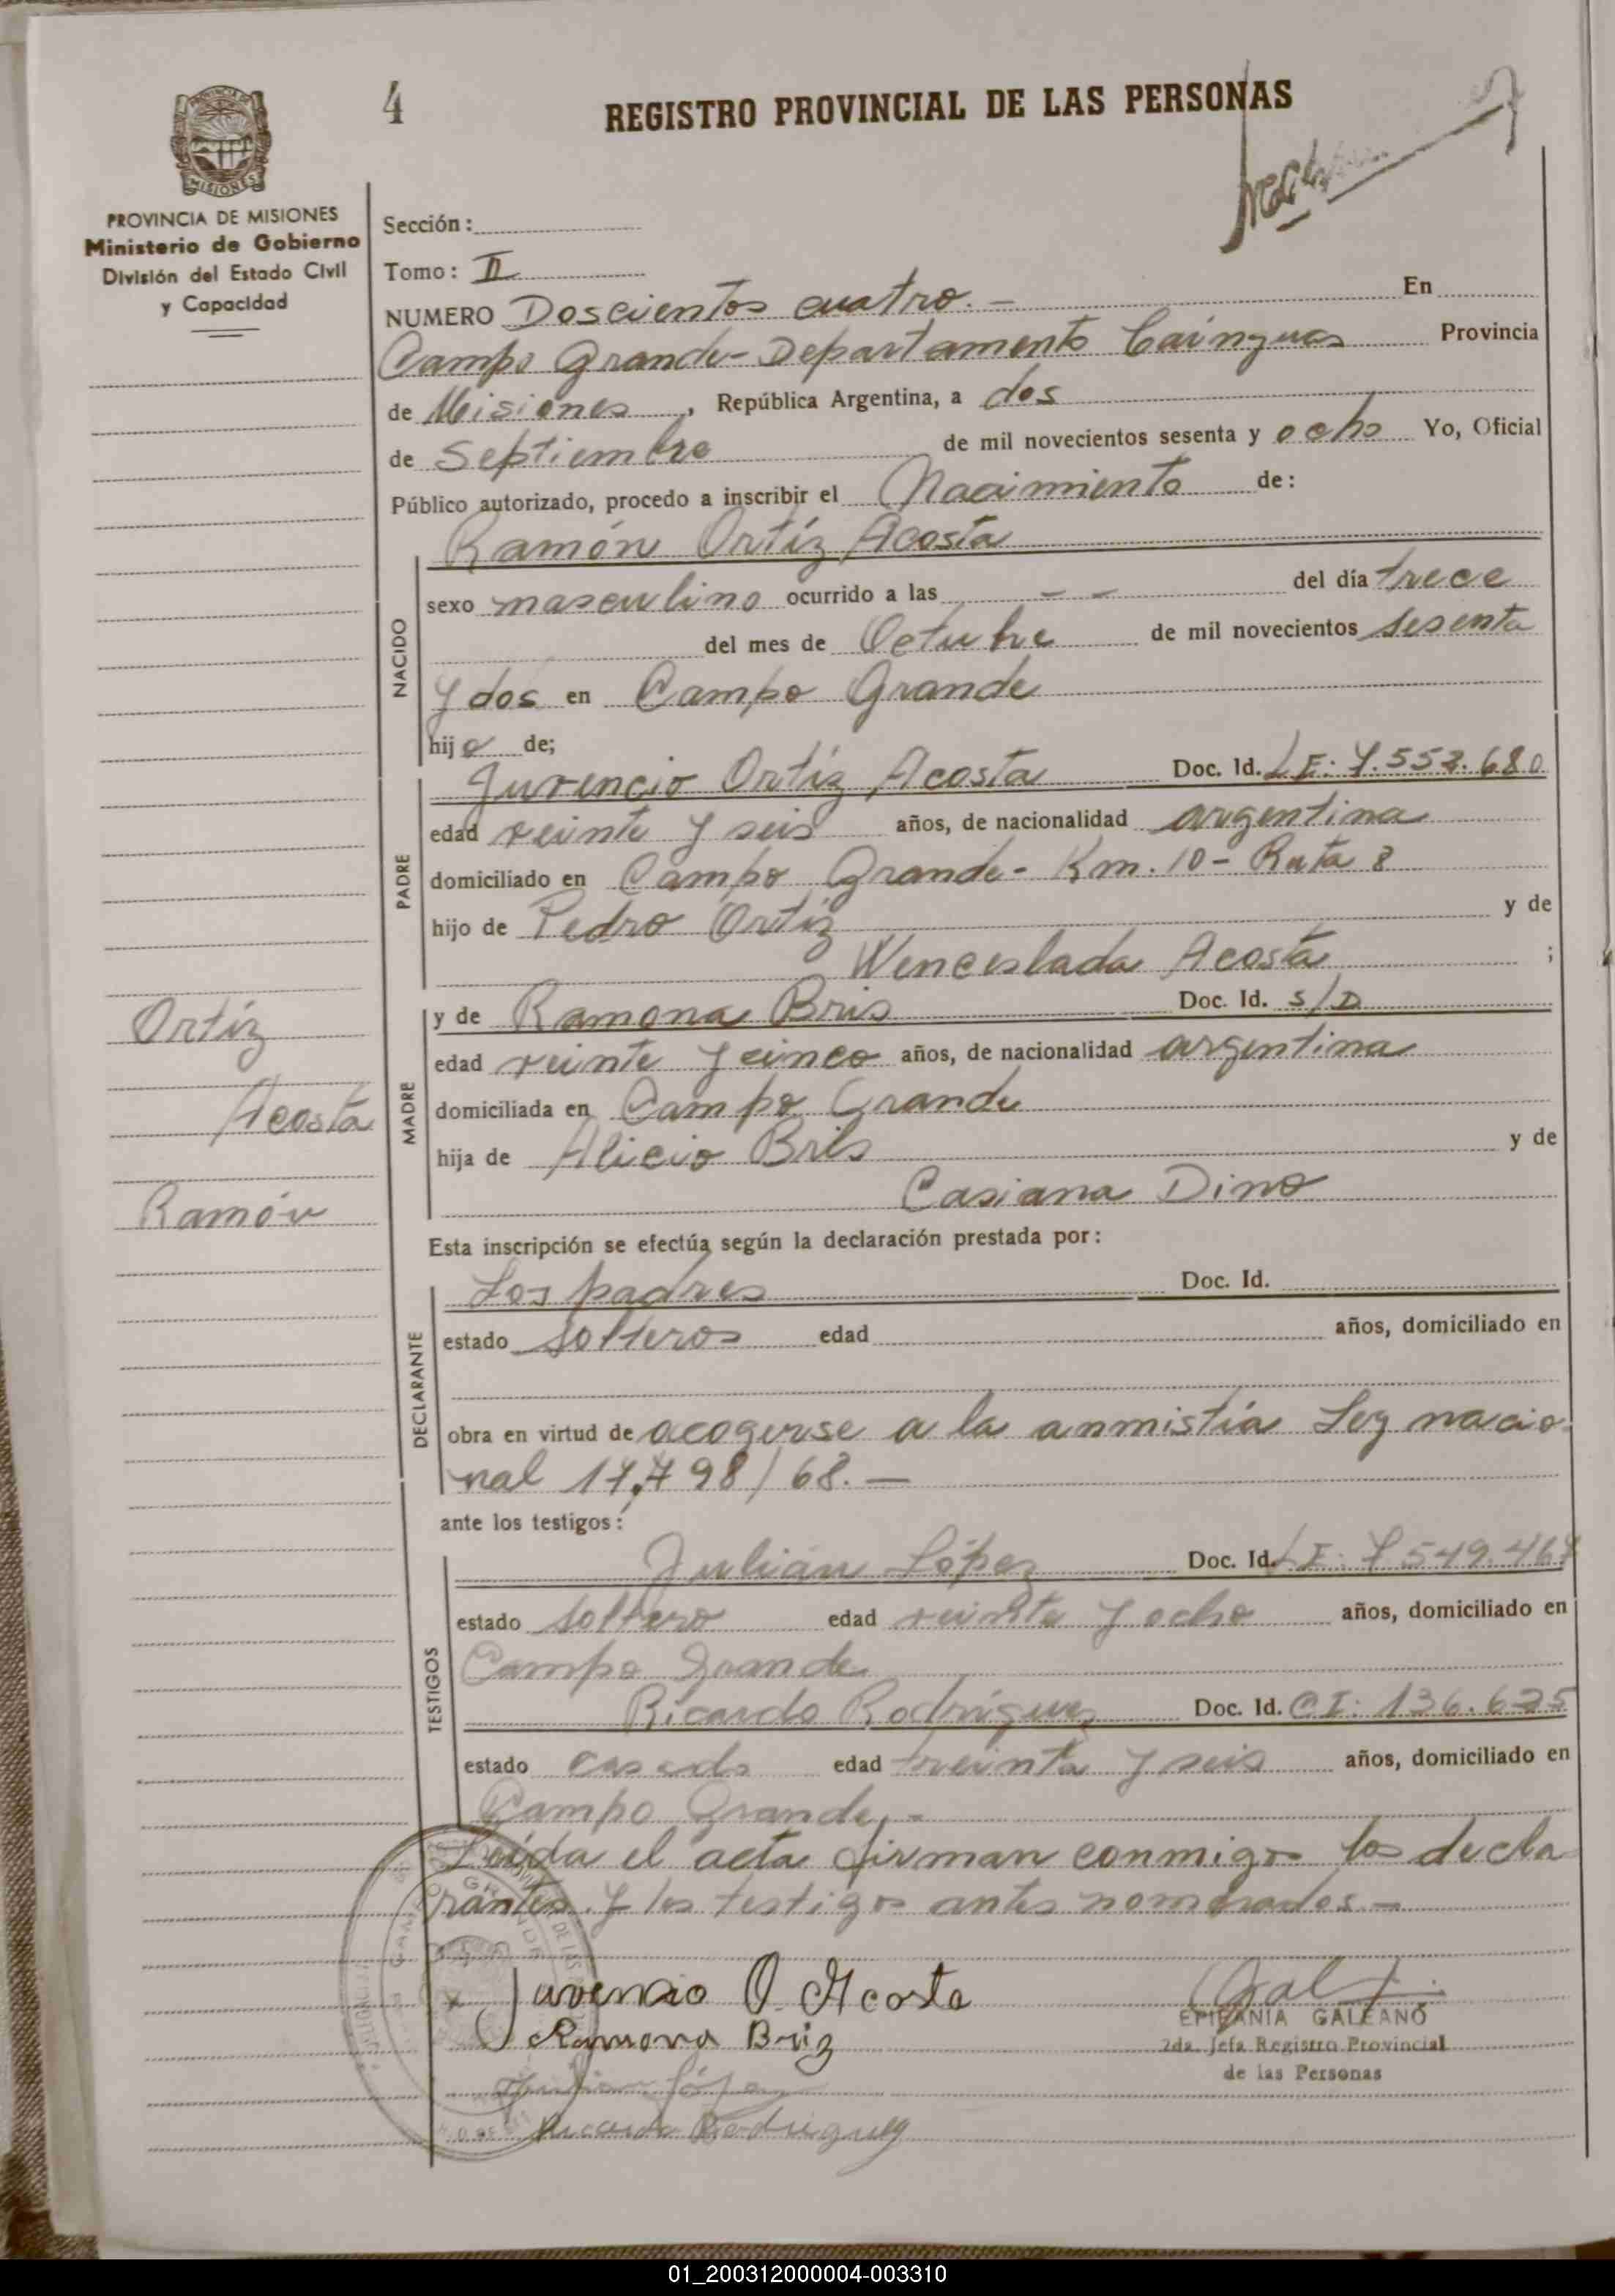 4
REGISTRO PROVINCIAL DE LAS PERSONAS
PROVINCIA DE MISIONES
Ministerio de Gobierno
División del Estado Civil
y Capacidad
Sección:
Tomo: II
NUMERO Doscientos cuatro.- En
Campo Grande-Departamento Cainguas Provincia
de Misiones, República Argentina, a dos
de Septiembre de mil novecientos sesenta y ocho Yo, Oficial
Público autorizado, procedo a inscribir el Nacimiento de:
Ramón Ortíz Acosta
NACIDO
sexo masculino ocurrido a las - - del día trece
del mes de Octubre de mil novecientos sesenta
y dos en Campo Grande
hijo de;
PADRE
Juvencio Ortíz Acosta Doc. Id. LE: 7.552.680
edad veinte y seis años, de nacionalidad argentina
domiciliado en Campo Grande- Km. 10- Ruta 8
hijo de Pedro Ortíz y de
Wenceslada Acosta ;
MADRE
y de Ramona Bris Doc. Id. S/D
edad veinte y cinco años, de nacionalidad argentina
domiciliada en Campo Grande
hija de Alicio Bris y de
Casiana Dino
Ortíz
Acosta
Ramón
Esta inscripción se efectúa según la declaración prestada por:
DECLARANTE
Los padres Doc. Id.
estado solteros edad años, domiciliado en
obra en virtud de acogerse a la anmistía Ley nacio-
nal 17,798/68.-
ante los testigos:
TESTIGOS
Julián López Doc. Id. LE: 7.549.467
estado soltero edad veinte y ocho años, domiciliado en
Campo Grande
Ricardo Rodríguez Doc. Id. CI: 136.625
estado casado edad treinta y seis años, domiciliado en
Campo Grande.-
Leída el acta firman conmigo los decla
rantes y los testigos antes nombrados.-
Juvencio O. Acosta
Ramona Briz
Julian López
Ricardo Rodriguez
EPIFANIA GALEANO
2da. Jefa Registro Provincial
de las Personas
01_200312000004-003310